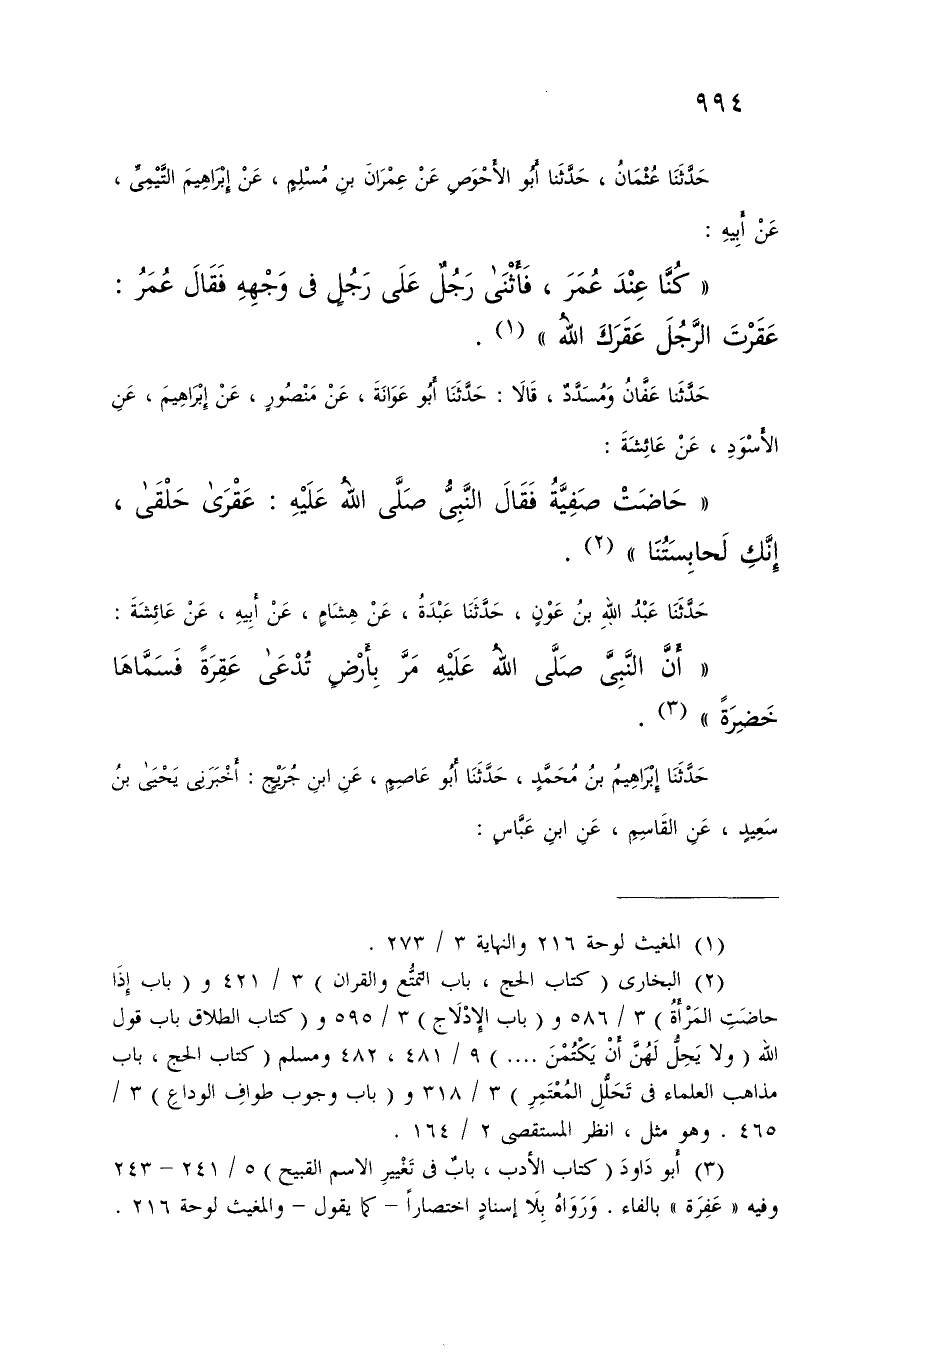 ٩٩٤
حَدَّثَنَا عُثْمَانُ ، حَدَّثَنا أَبُو الأَحْوَصِ عَنْ عِمْرَانَ بنِ مُسْلِمٍ ، عَنْ إِبْرَاهِيمَ التَّيْمِىِّ ،
عَنْ أَبِيهِ :
« كُنَّا عِنْدَ عُمَرَ ، فَأَثْنَىٰ رَجُلٌ عَلَى رَجُلٍ فى وَجْهِهِ فَقَالَ عُمَرُ :
عَقَرْتَ الرَّجُلَ عَقَرَكَ اللهُ » (١) .
حَدَّثَنا عَفَّانُ وَمُسَدَّدٌ ، قَالَا : حَدَّثَنَا أَبُو عَوَانَةَ ، عَنْ مَنْصُورٍ ، عَنْ إِبْرَاهِيمَ ، عَنِ
الأَسْوَدِ ، عَنْ عَائِشَةَ :
« حَاضَتْ صَفِيَّةُ فَقَالَ النَّبِىُّ صَلَّى اللهُ عَلَيْهِ : عَقْرَىٰ حَلْقَىٰ ،
إِنَّكِ لَحابِسَتُنَا » (٢) .
حَدَّثَنَا عَبْدُ اللهِ بنُ عَوْنٍ ، حَدَّثَنَا عَبْدَةُ ، عَنْ هِشَامٍ ، عَنْ أَبِيهِ ، عَنْ عَائِشَةَ :
« أَنَّ النَّبِىَّ صَلَّى اللهُ عَلَيْهِ مَرَّ بِأَرْضٍ تُدْعَىٰ عَقِرَةً فَسَمَّاهَا
خَضِرَةً » (٣) .
حَدَّثَنَا إِبْرَاهِيمُ بنُ مُحَمَّدٍ ، حَدَّثَنَا أَبُو عَاصِمٍ ، عَنِ ابنِ جُرَيْجٍ : أَخْبَرَنِى يَحْيَىٰ بنُ
سَعِيدٍ ، عَنِ القَاسِمِ ، عَنِ ابنِ عَبَّاسٍ :
(١) المغيث لوحة ٢١٦ والنهاية ٣ / ٢٧٣ .
(٢) البخارى ( كتاب الحج ، باب التمتُّع والقران ) ٣ / ٤٢١ و ( باب إِذَا
حاضَتِ المَرْأَةُ ) ٣ / ٥٨٦ و ( باب الإِدْلَاج ) ٣ / ٥٩٥ و ( كتاب الطلاق باب قول
الله ( ولا يَحِلُّ لَهُنَّ أَنْ يَكْتُمْنَ .... ) ٩ / ٤٨١ ، ٤٨٢ ومسلم ( كتاب الحج ، باب
مذاهب العلماء فى تَحَلُّلِ المُعْتَمِرِ ) ٣ / ٣١٨ و ( باب وجوب طوافِ الوداعِ ) ٣ /
٤٦٥ . وهو مثل ، انظر المستقصى ٢ / ١٦٤ .
(٣) أبو دَاودَ ( كتاب الأدب ، بابٌ فى تَغْيِيرِ الاسم القبيح ) ٥ / ٢٤١ – ٢٤٣
وفيه « عَفِرَة » بالفاء . وَرَوَاهُ بِلَا إسنادٍ اختصاراً – كما يقول – والمغيث لوحة ٢١٦ .